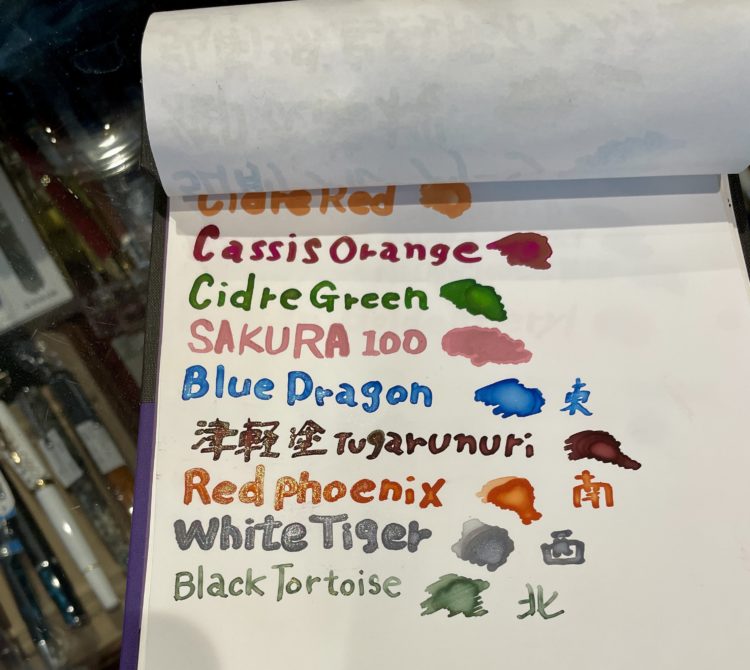 Cidre Red
Cassis Orange
Cidre Green
SAKURA 100
Blue Dragon 東
津軽塗 Tugarunuri
Red Phoenix 南
White Tiger 西
Black Tortoise 北